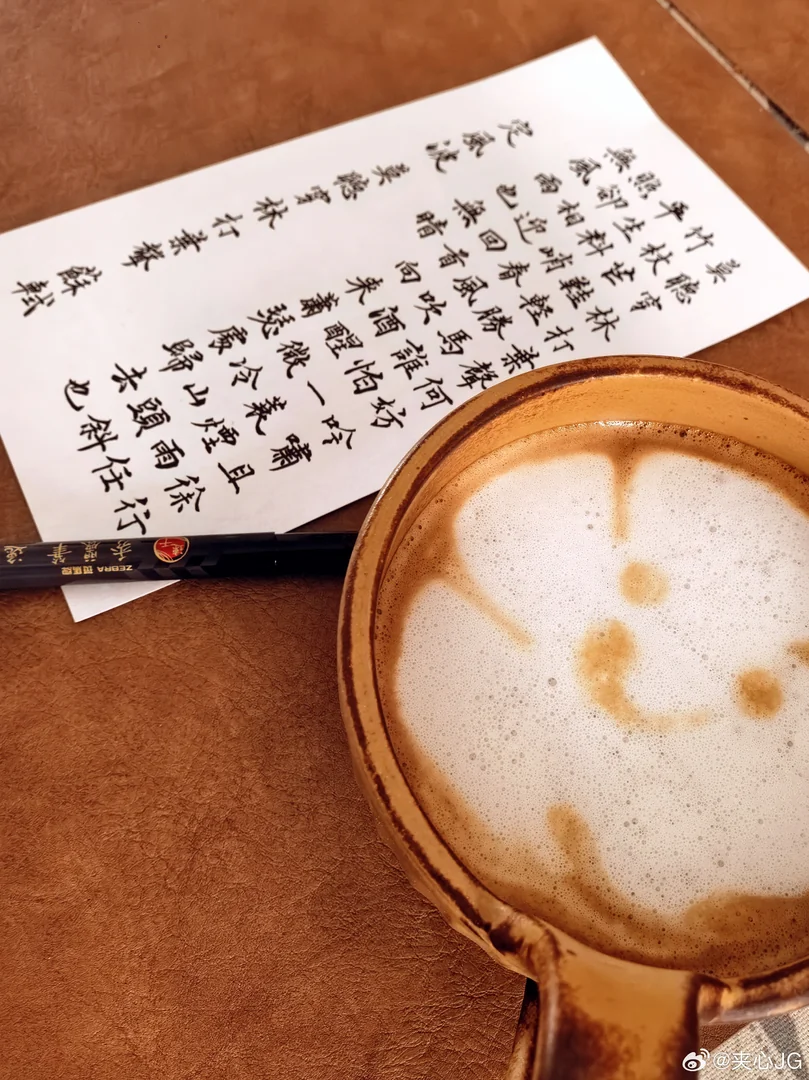 莫聽穿林打葉聲何妨吟嘯且徐行
竹杖芒鞋輕勝馬誰怕一蓑煙雨任
平生料峭春風吹酒醒微冷山頭斜
照卻相迎回首向来蕭瑟處歸去也
無風雨也無晴
定風波 莫聽穿林打葉聲 蘇軾
ZEBRA
@夹心JG